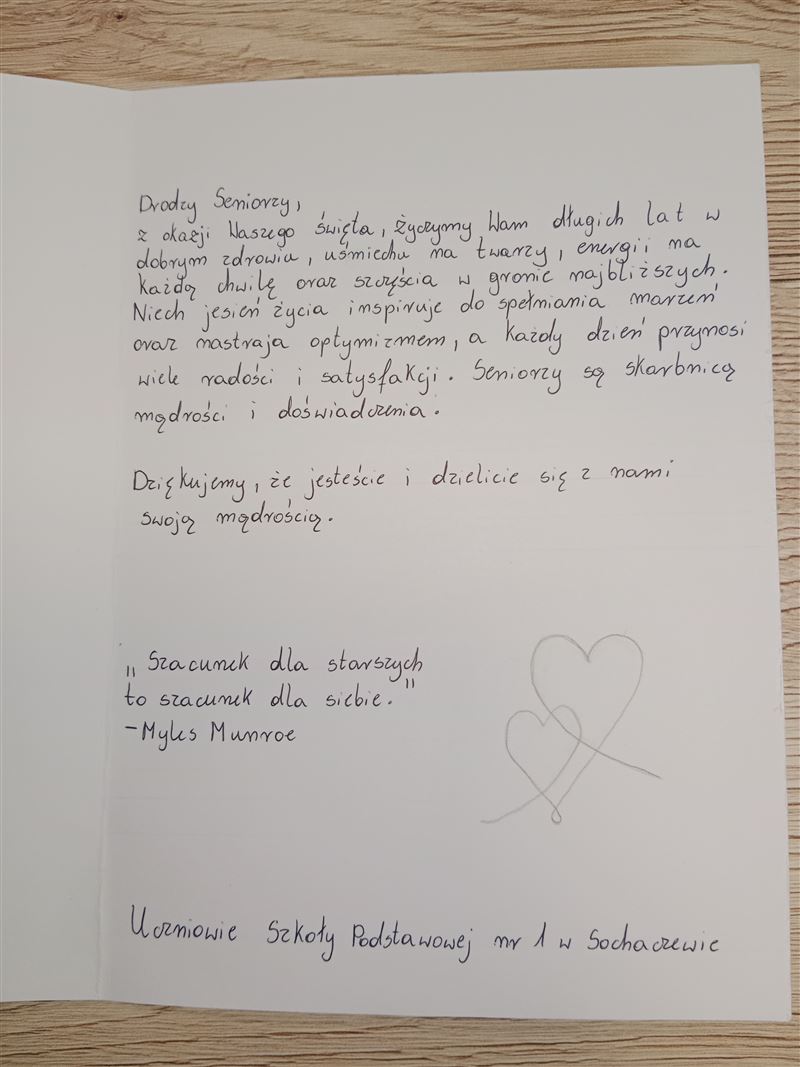 Drodzy Seniorzy,
z okazji Waszego święta, życzymy Wam długich lat w
dobrym zdrowiu, uśmiechu na twarzy, energii na
każdą chwilę oraz szczęścia w gronie najbliższych.
Niech jesień życia inspiruje do spełniania marzeń
oraz nastraja optymizmem, a każdy dzień przynosi
wiele radości i satysfakcji. Seniorzy są skarbnicą
mądrości i doświadczenia.
Dziękujemy, że jesteście i dzielicie się z nami
swoją mądrością.
„Szacunek dla starszych
to szacunek dla siebie."
-Myles Munroe
Uczniowie Szkoły Podstawowej nr 1 w Sochaczewie